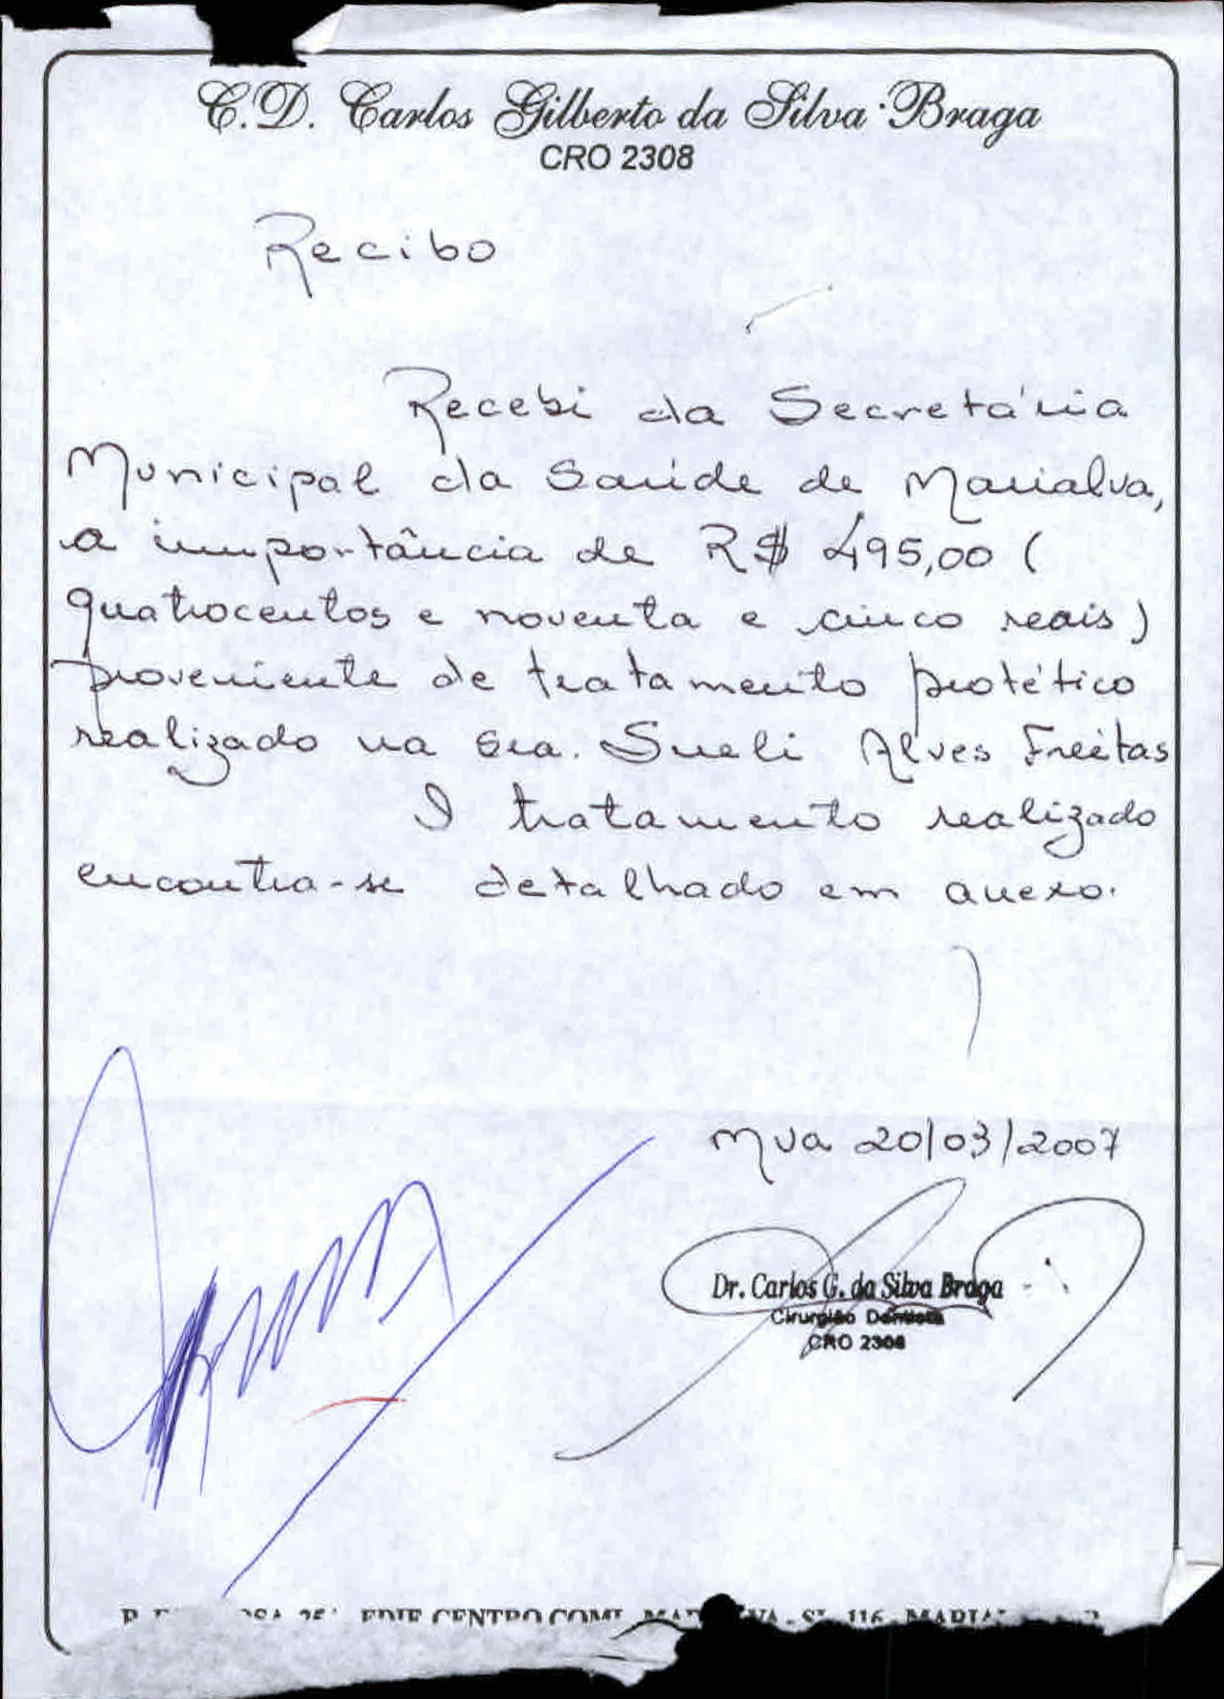 C.D. Carlos Gilberto da Silva Braga
CRO 2308
Recibo
Recebi da Secretária
Municipal da Saúde de Marialva,
a importância de R$ 495,00 (
quatrocentos e noventa e cinco reais)
proveniente de tratamento protético
realizado na Sra. Sueli Alves Freitas
O tratamento realizado
encontra-se detalhado em anexo.
Mva 20/03/2007
Dr. Carlos G. da Silva Braga
Cirurgião Dentista
CRO 2308
EDIF CENTRO COML